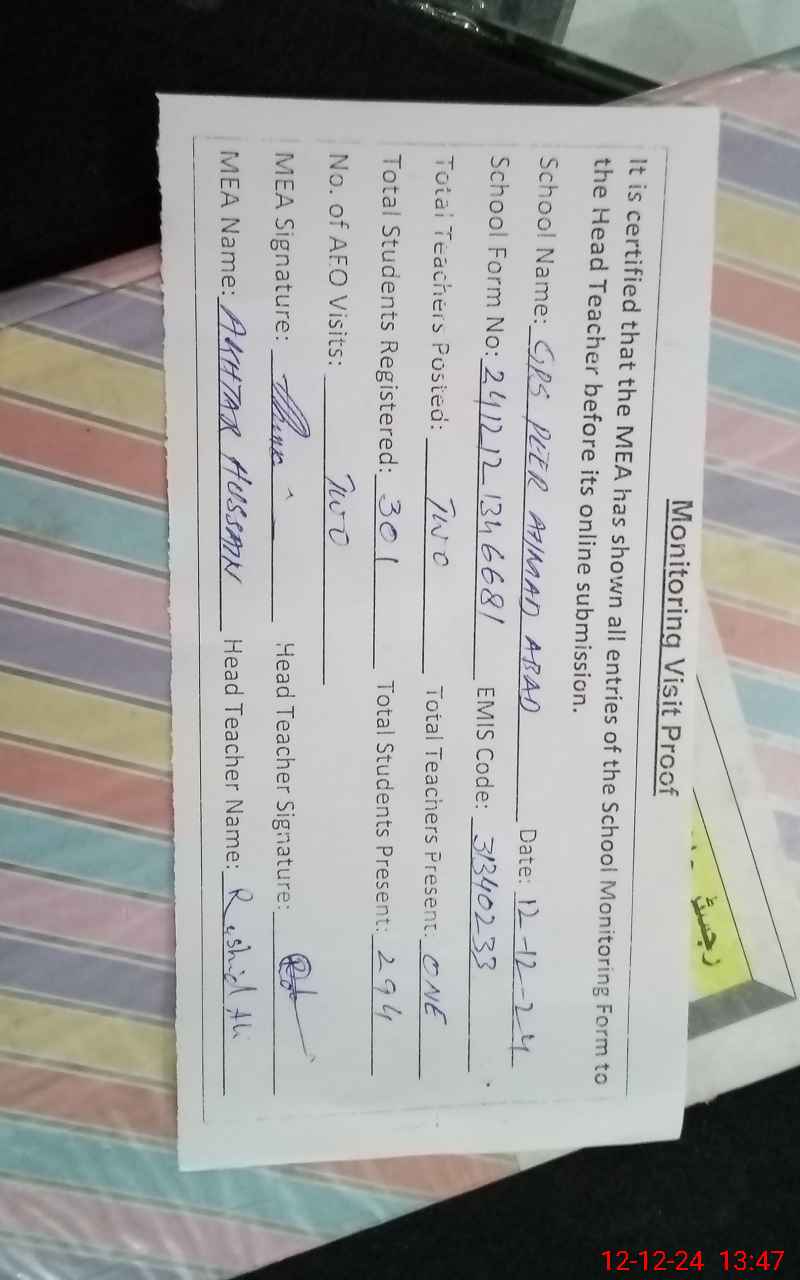 Monitoring Visit Proof
It is certified that the MEA has shown all entries of the School Monitoring Form to
the Head Teacher before its online submission.
School Name: GPS PEER AHMAD ABAD Date: 12-12-24
School Form No: 2412121346681 EMIS Code: 31340233
Total Teachers Posted: TWO Total Teachers Present: ONE
Total Students Registered: 301 Total Students Present: 294
No. of AEO Visits: TWO
MEA Signature: Head Teacher Signature:
MEA Name: AKHTAR HUSSAIN Head Teacher Name: Rashid Ali
رجسٹر
12-12-24 13:47